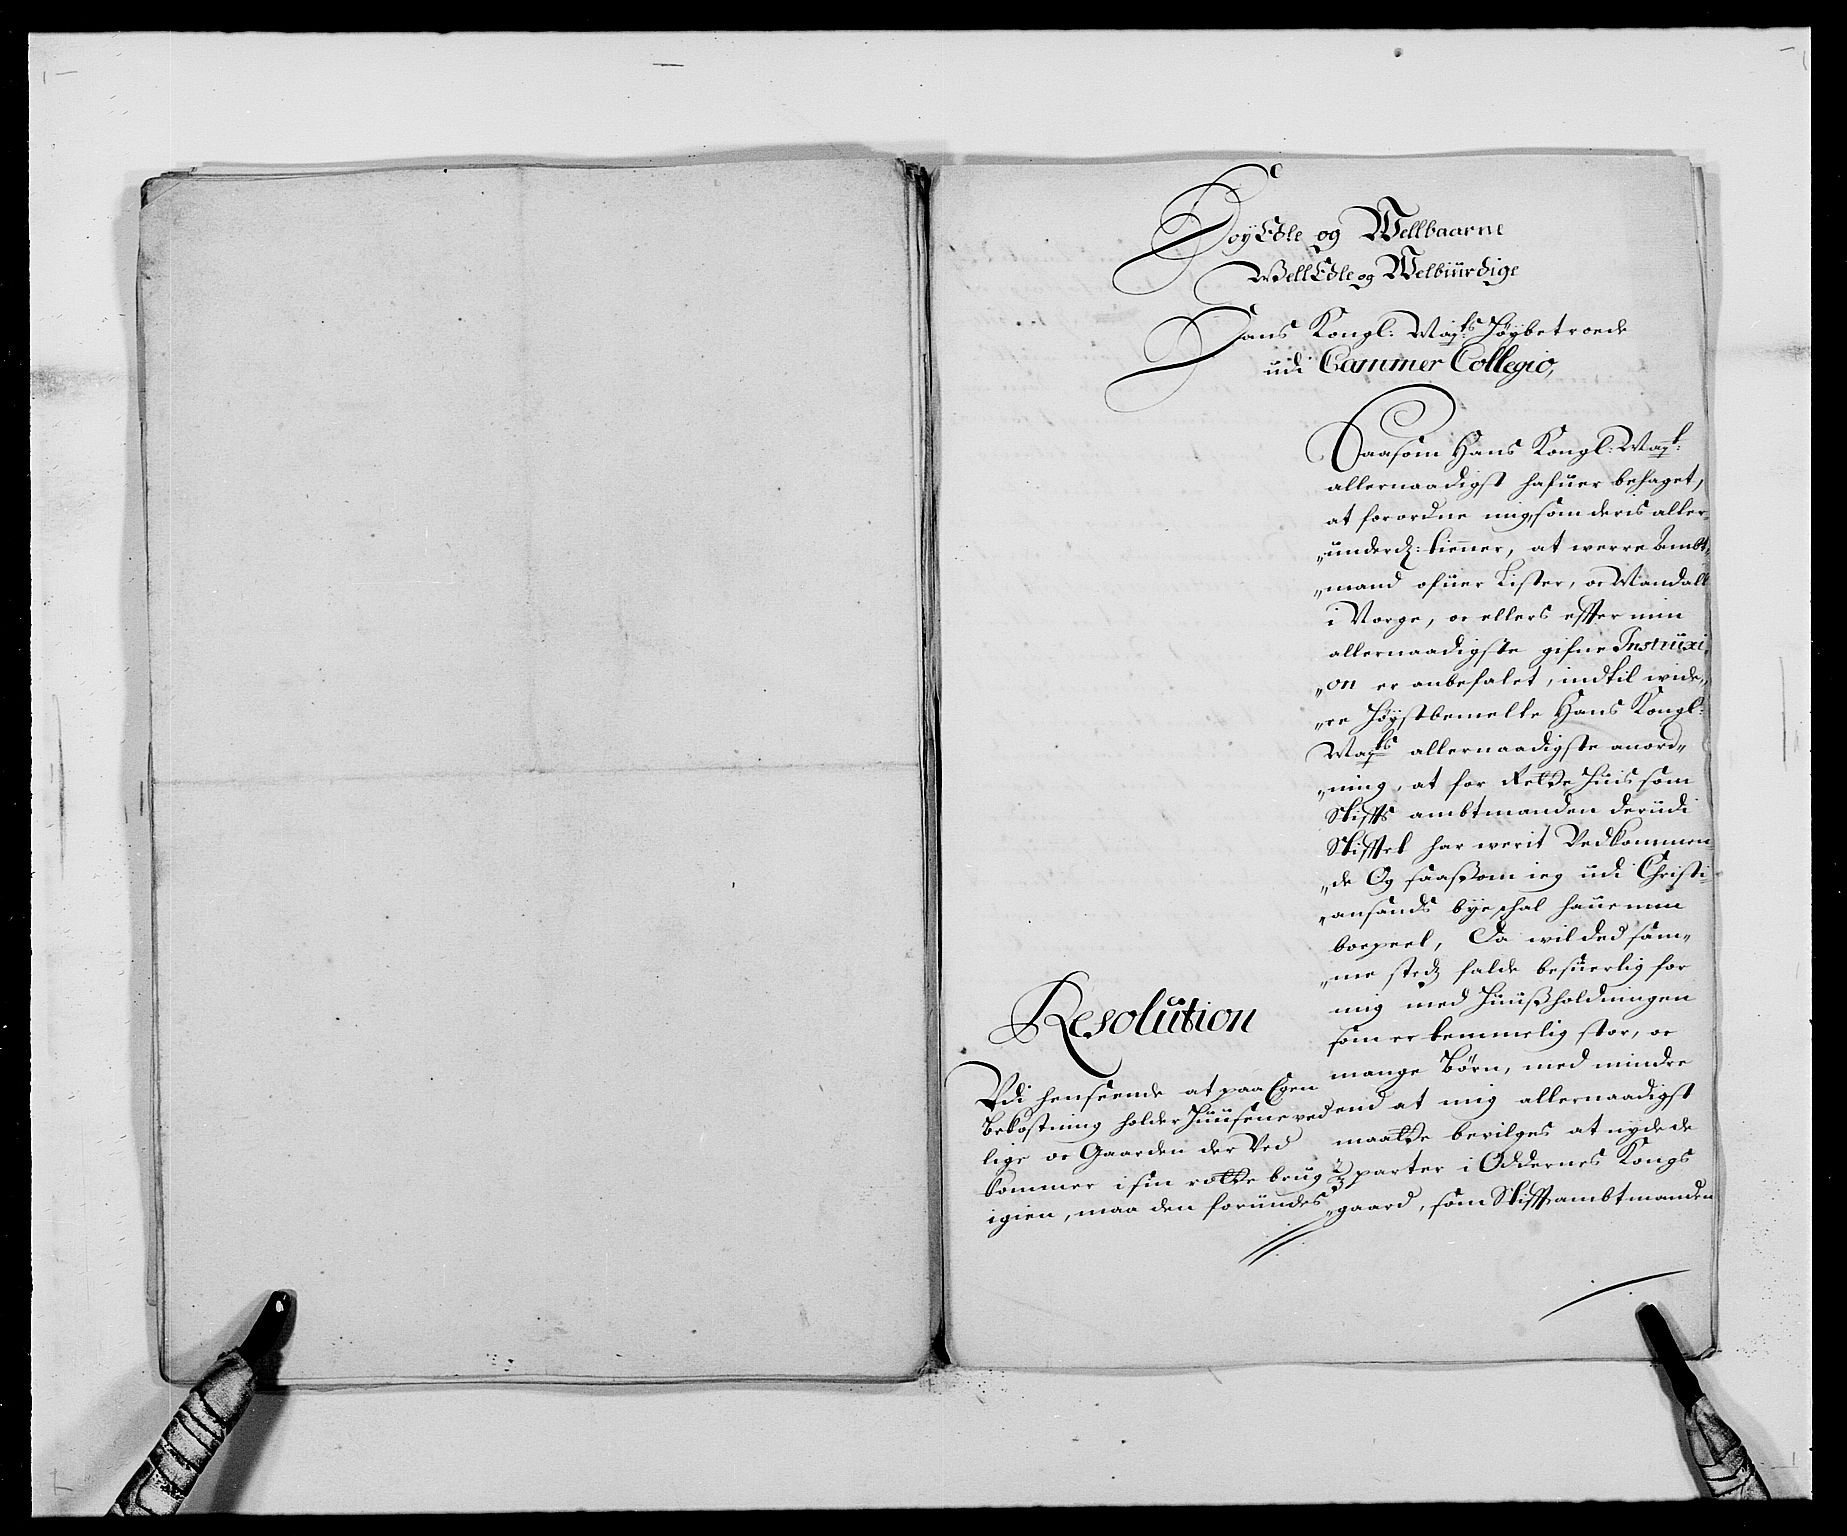 HøyEdle og Wellbaarne
WellEdle og Welbiurdige
Hans Kongl: May:ts Høybetroede
udi Cammer Collegio,
Saasom Hans Kongl: May:t
allernaadigst hafuer behaget,
at forordne mig, som deris aller-
„underd: tienner, at werre Ambt„
„mand ofuer Lister, oc Mandall
i Norge, oc ellers effter min
allernaadigste gifne Instruxi„
„on er anbefalet, indtil wide„
„re Høystbemelte Hans Kongl:
May:ts allernaadigste anord„
„ning, at for Rette huis som
Stiffts ambtmanden derudi
Stifftet har werit Vedkommen„
„de Og saasom ieg udi Christi„
„ansands bye schal haue min
boepeel, Da wil ded sam„
„me stedz falde besuerlig for
mig med Huusholdningen
som er temmelig stor, oc
mange Børn, med mindre
end at mig allernaadigst
maatte bevilges at nyde de
2/3 parter i Oddernes Kongs
„gaard, som Stifftambtmanden
Resolution
Vdi henseende at paa Egen
Bekostning holder Huusene ved
lige oc Gaarden der Ved
kommer i sin rette brug
igien, maa den forundes